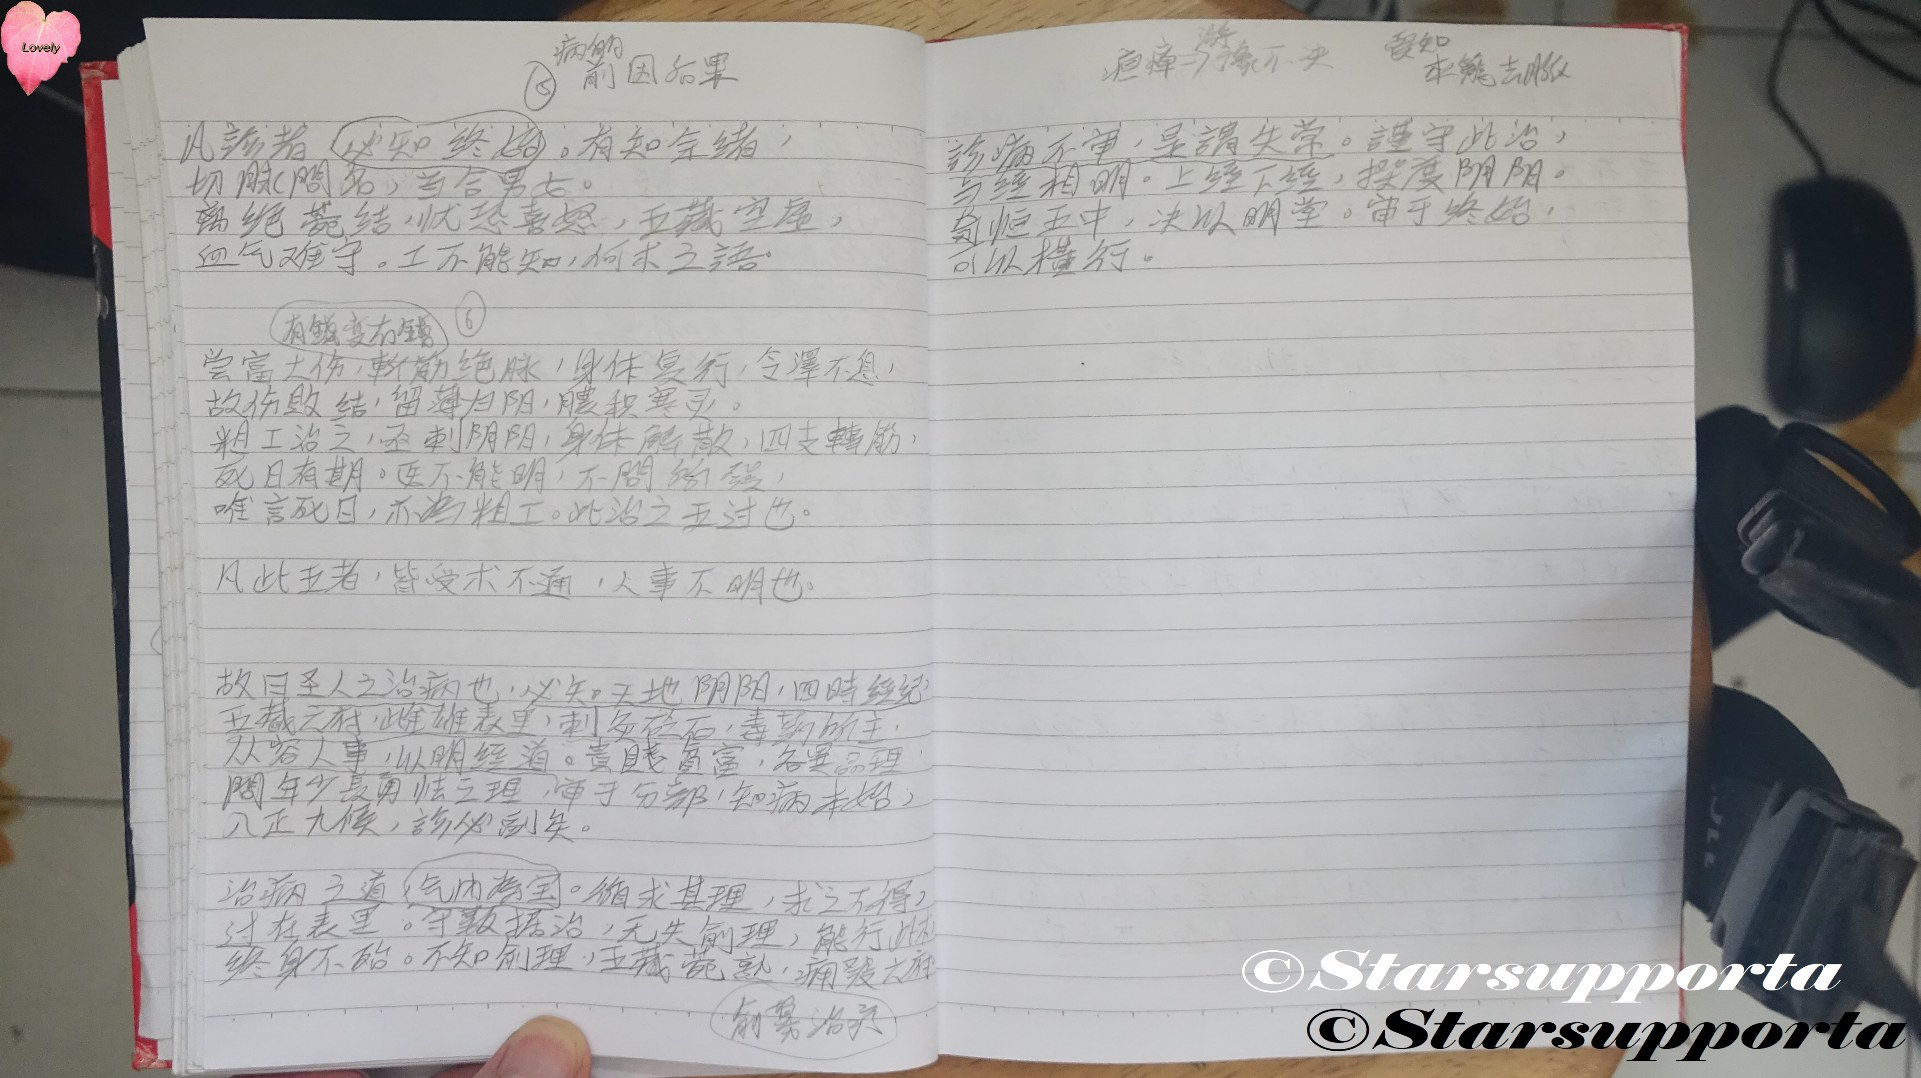 Lovely
病的
⑤ 前因后果
凡診者必知終始。有知余緒，
切脉問名，当合男女。
离絕菀结，忧恐喜怒，五藏空虚，
血气难守。工不能知，何求之語。
⑥
尝富大伤，斬筋絕脉，身体复行，令澤不息，
故伤败结，留薄归阴，膿积寒炅。
粗工治之，亟刺阴阳，身体解散，四支轉筋，
死日有期。医不能明，不問所發，
唯言死日，亦為粗工。此治之五过也。
凡此五者，皆受术不通，人事不明也。
故曰圣人之治病也，必知天地阴阳，四時經纪，
五藏六府，雌雄表里，刺灸砭石，毒药所主，
从容人事，以明經道。贵賤貧富，各異品理，
問年少長勇怯之理，审于分部，知病本始，
八正九候，診必副矣。
治病之道，气内為宝。循求其理，求之不得，
过在表里。守数据治，无失俞理，能行此术
終身不殆。不知俞理，五藏菀熟，痈發六府
診病不审，是謂失常。謹守此治，
与經相明。上經下經，揆度阴阳。
奇恒五中，决以明堂。审于終始，
可以橫行。
©Starsupporta
©Starsupporta